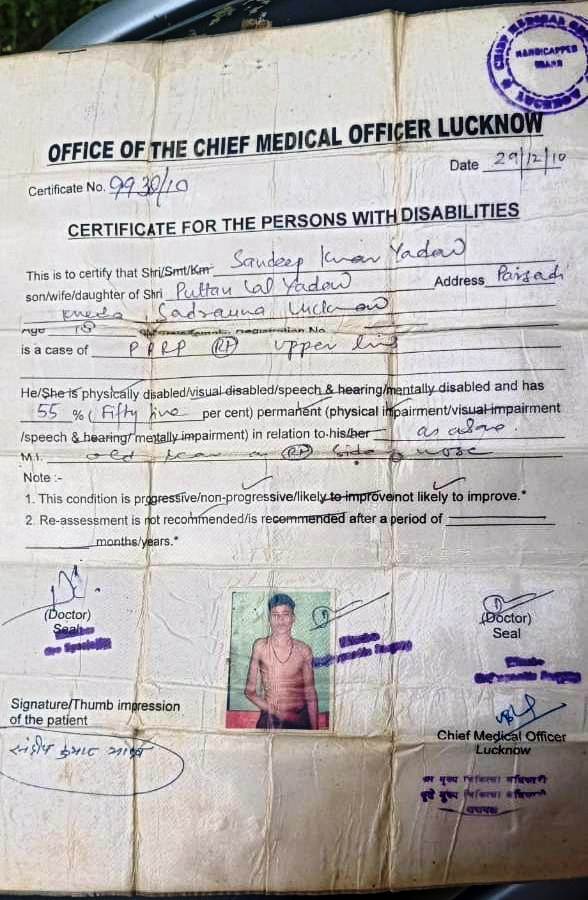 CHIEF MEDICAL OFF
HANDICAPPED
BOARD
OFFICE OF THE CHIEF MEDICAL OFFICER LUCKNOW
Date 29/12/10
Certificate No. 9930/10
CERTIFICATE FOR THE PERSONS WITH DISABILITIES
This is to certify that Shri/Smt/Km Sandeep Kumar Yadav
son/wife/daughter of Shri Puttau Lal Yadav Address Parsadi
Kheda Sadrauna Lucknow
Age 18 Registration No
is a case of PPRP (Rt) upper limb
He/She is physically disabled/visual disabled/speech & hearing/mentally disabled and has
55 % (Fifty five per cent) permanent (physical impairment/visual impairment
/speech & hearing/ metally impairment) in relation to his/her as above.
M.I. old scar on (Rt) side of nose
Note :-
1. This condition is progressive/non-progressive/likely to improve/not likely to improve.*
2. Re-assessment is not recommended/is recommended after a period of
months/years.*
(Doctor)
Seal
(Doctor)
Seal
Signature/Thumb impression
of the patient
संदीप कुमार यादव
Chief Medical Officer
Lucknow
मुख्य चिकित्सा अधिकारी
मुख्य चिकित्सा अधिकारी
लखनऊ